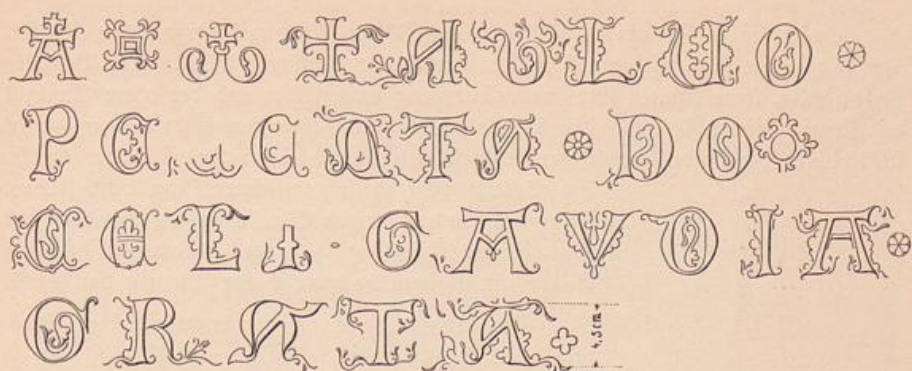 A ω + ABLUO
PE CATA · DO
CELI · GAVDIA
GRATA 4,5 cm